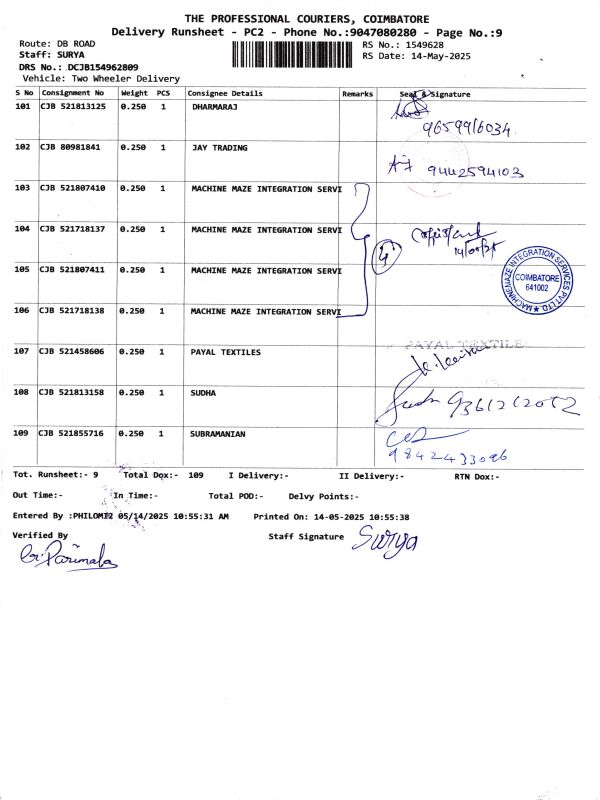 THE PROFESSIONAL COURIERS, COIMBATORE
Delivery Runsheet - PC2 - Phone No.:9047080280 - Page No.:9
Route: DB ROAD
RS No.: 1549628
Staff: SURYA
RS Date: 14-May-2025
DRS No.: .DCJB154962809
Vehicle: Two Wheeler Delivery
S No Consignment No Weight PCS Consignee Details Remarks Seal & Signature
101 CJB 521813125 0.250 1 DHARMARAJ
9659916034
102 CJB 80981841 0.250 1 JAY TRADING
9442594103
103 CJB 521807410 0.250 1 MACHINE MAZE INTEGRATION SERVI
104 CJB 521718137 0.250 1 MACHINE MAZE INTEGRATION SERVI
4
14/05/25
105 CJB 521807411 0.250 1 MACHINE MAZE INTEGRATION SERVI
MACHINEMAZE INTEGRATION SERVICES PVT LTD ★
COIMBATORE
641002
106 CJB 521718138 0.250 1 MACHINE MAZE INTEGRATION SERVI
107 CJB 521458606 0.250 1 PAYAL TEXTILES
PAYAL TEXTILE
108 CJB 521813158 0.250 1 SUDHA
Sudh 9361212052
109 CJB 521855716 0.250 1 SUBRAMANIAN
9842433096
Tot. Runsheet:- 9 Total Dox:- 109 I Delivery:- II Delivery:- RTN Dox:-
Out Time:- In Time:- Total POD:- Delvy Points:-
Entered By :PHILOMI2 05/14/2025 10:55:31 AM Printed On: 14-05-2025 10:55:38
Verified By
Staff Signature Surya
G. Parimala